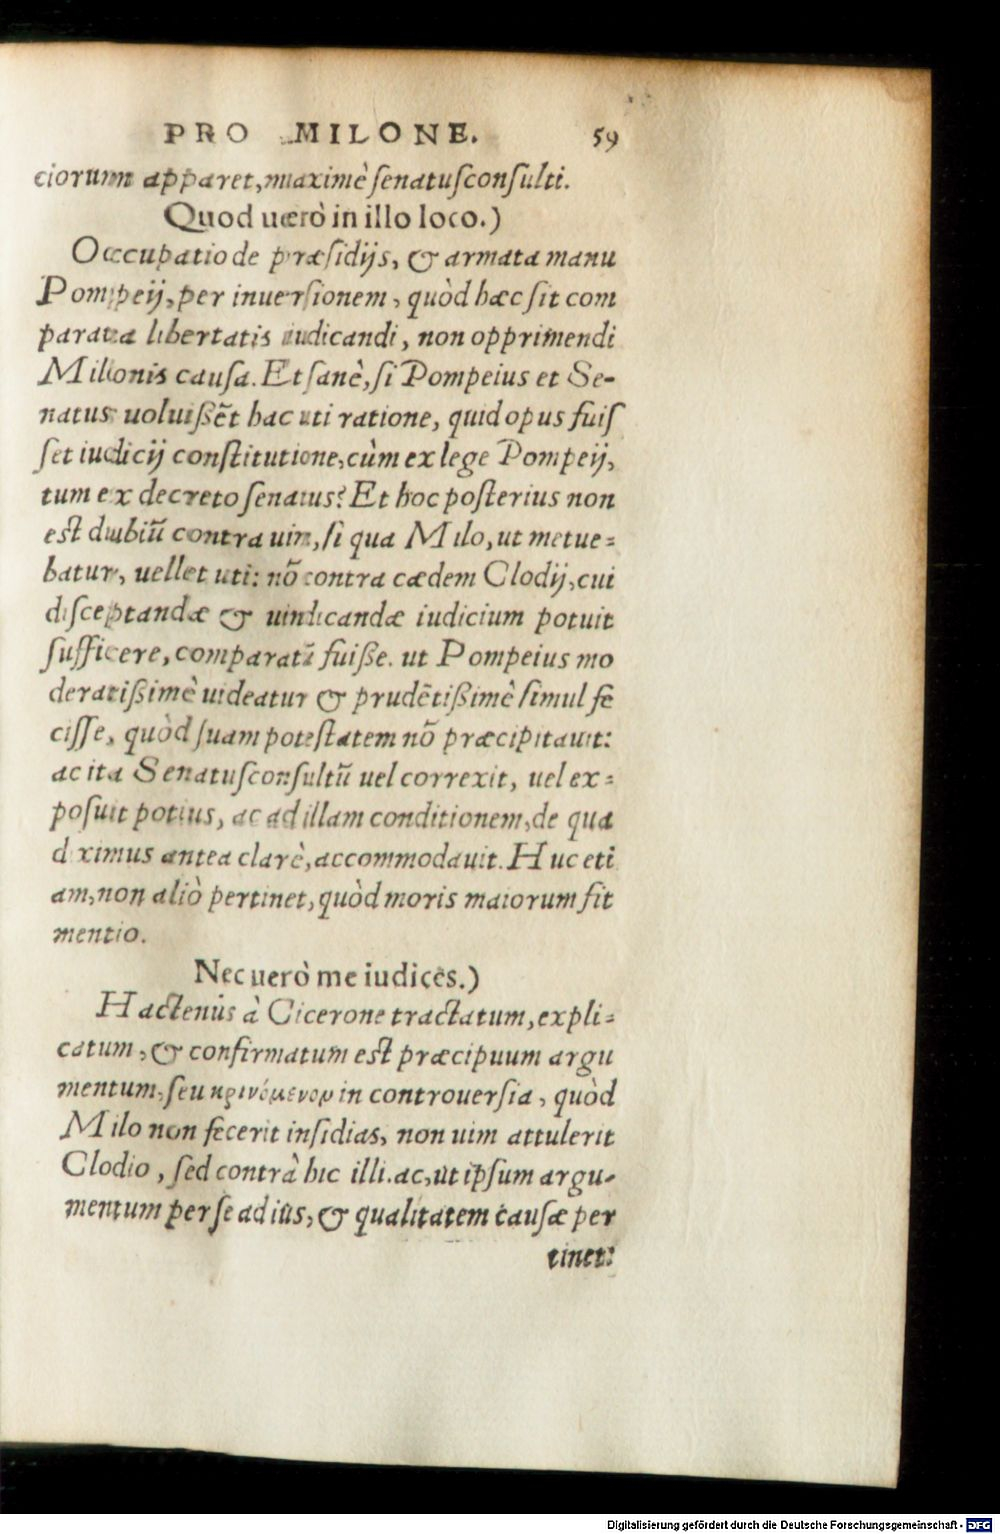 PRO MILONE. 59
ciorum apparet, maximè senatusconsulti.
Quod uerò in illo loco.)
Occupatio de præsidijs, & armata manu
Pompeij, per inuersionem, quòd hæc sit com
parata libertatis iudicandi, non opprimendi
Milonis causa. Et sanè, si Pompeius et Se-
natus uoluißēt hac uti ratione, quid opus fuis
set iudicij constitutione, cùm ex lege Pompeij,
tum ex decreto senatus? Et hoc posterius non
est dubiū contra uim, si qua Milo, ut metue-
batur, uellet uti: nō contra cædem Clodij, cui
disceptandæ & uindicandæ iudicium potuit
sufficere, comparatū fuiße. ut Pompeius mo
deratißimè uideatur & prudētißimè simul fe
cisse, quòd suam potestatem nō præcipitauit:
ac ita Senatusconsultū uel correxit, uel ex-
posuit potius, ac ad illam conditionem, de qua
diximus antea clarè, accommodauit. Huc eti
am, non aliò pertinet, quòd moris maiorum fit
mentio.
Nec uerò me iudices.)
Hactenùs à Cicerone tractatum, expli-
catum, & confirmatum est præcipuum argu
mentum, seu κρινόμενον in controuersia, quòd
Milo non fecerit insidias, non uim attulerit
Clodio, sed contrà hic illi. ac, ut ipsum argu-
mentum per se ad iùs, & qualitatem causæ per
tinet:
Digitalisierung gefördert durch die Deutsche Forschungsgemeinschaft - DFG